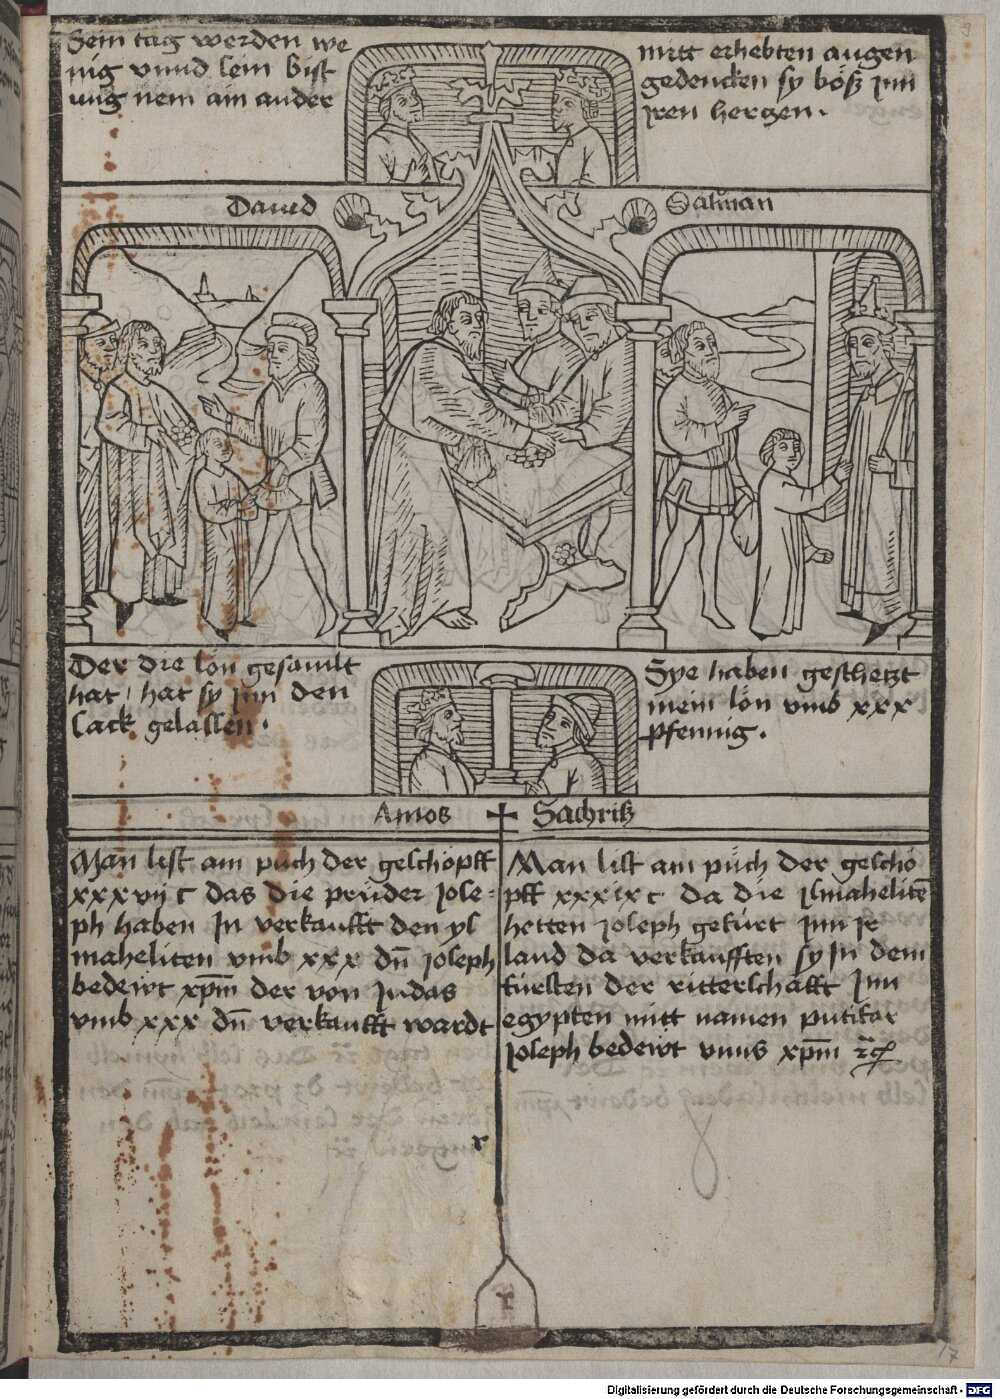 Sein tag werden we
nig vnnd sein bist
ung nem ain ander
mitt erhebten augen
gedencken sy böß jnn
jren hergen.
Dauid
Salman
Der die lön gesamlt
hat, hat sy jnn den
sack gelassen.
Sye haben geschetzt
mein lön vmb xxx
pfennig.
Amos
Sachriß
Man list am püch der geschöpff
xxxvij c das die prüder Jose-
ph haben In verkaufft den ys
maheliten vmb xxx dn̄ joseph
bedewt xp̄m der von Judas
vmb xxx dn̄ verkaufft wardt
Man list am püch der geschö
pff xxxix c da die jsmahelitē
hetten joseph gefürt jnn jr
land da verkaufften sy jn dem
fürsten der ritterschafft Jnn
egypten mitt namen putifar
joseph bedewt vnns xp̄m
r
17
Digitalisierung gefördert durch die Deutsche Forschungsgemeinschaft - DFG